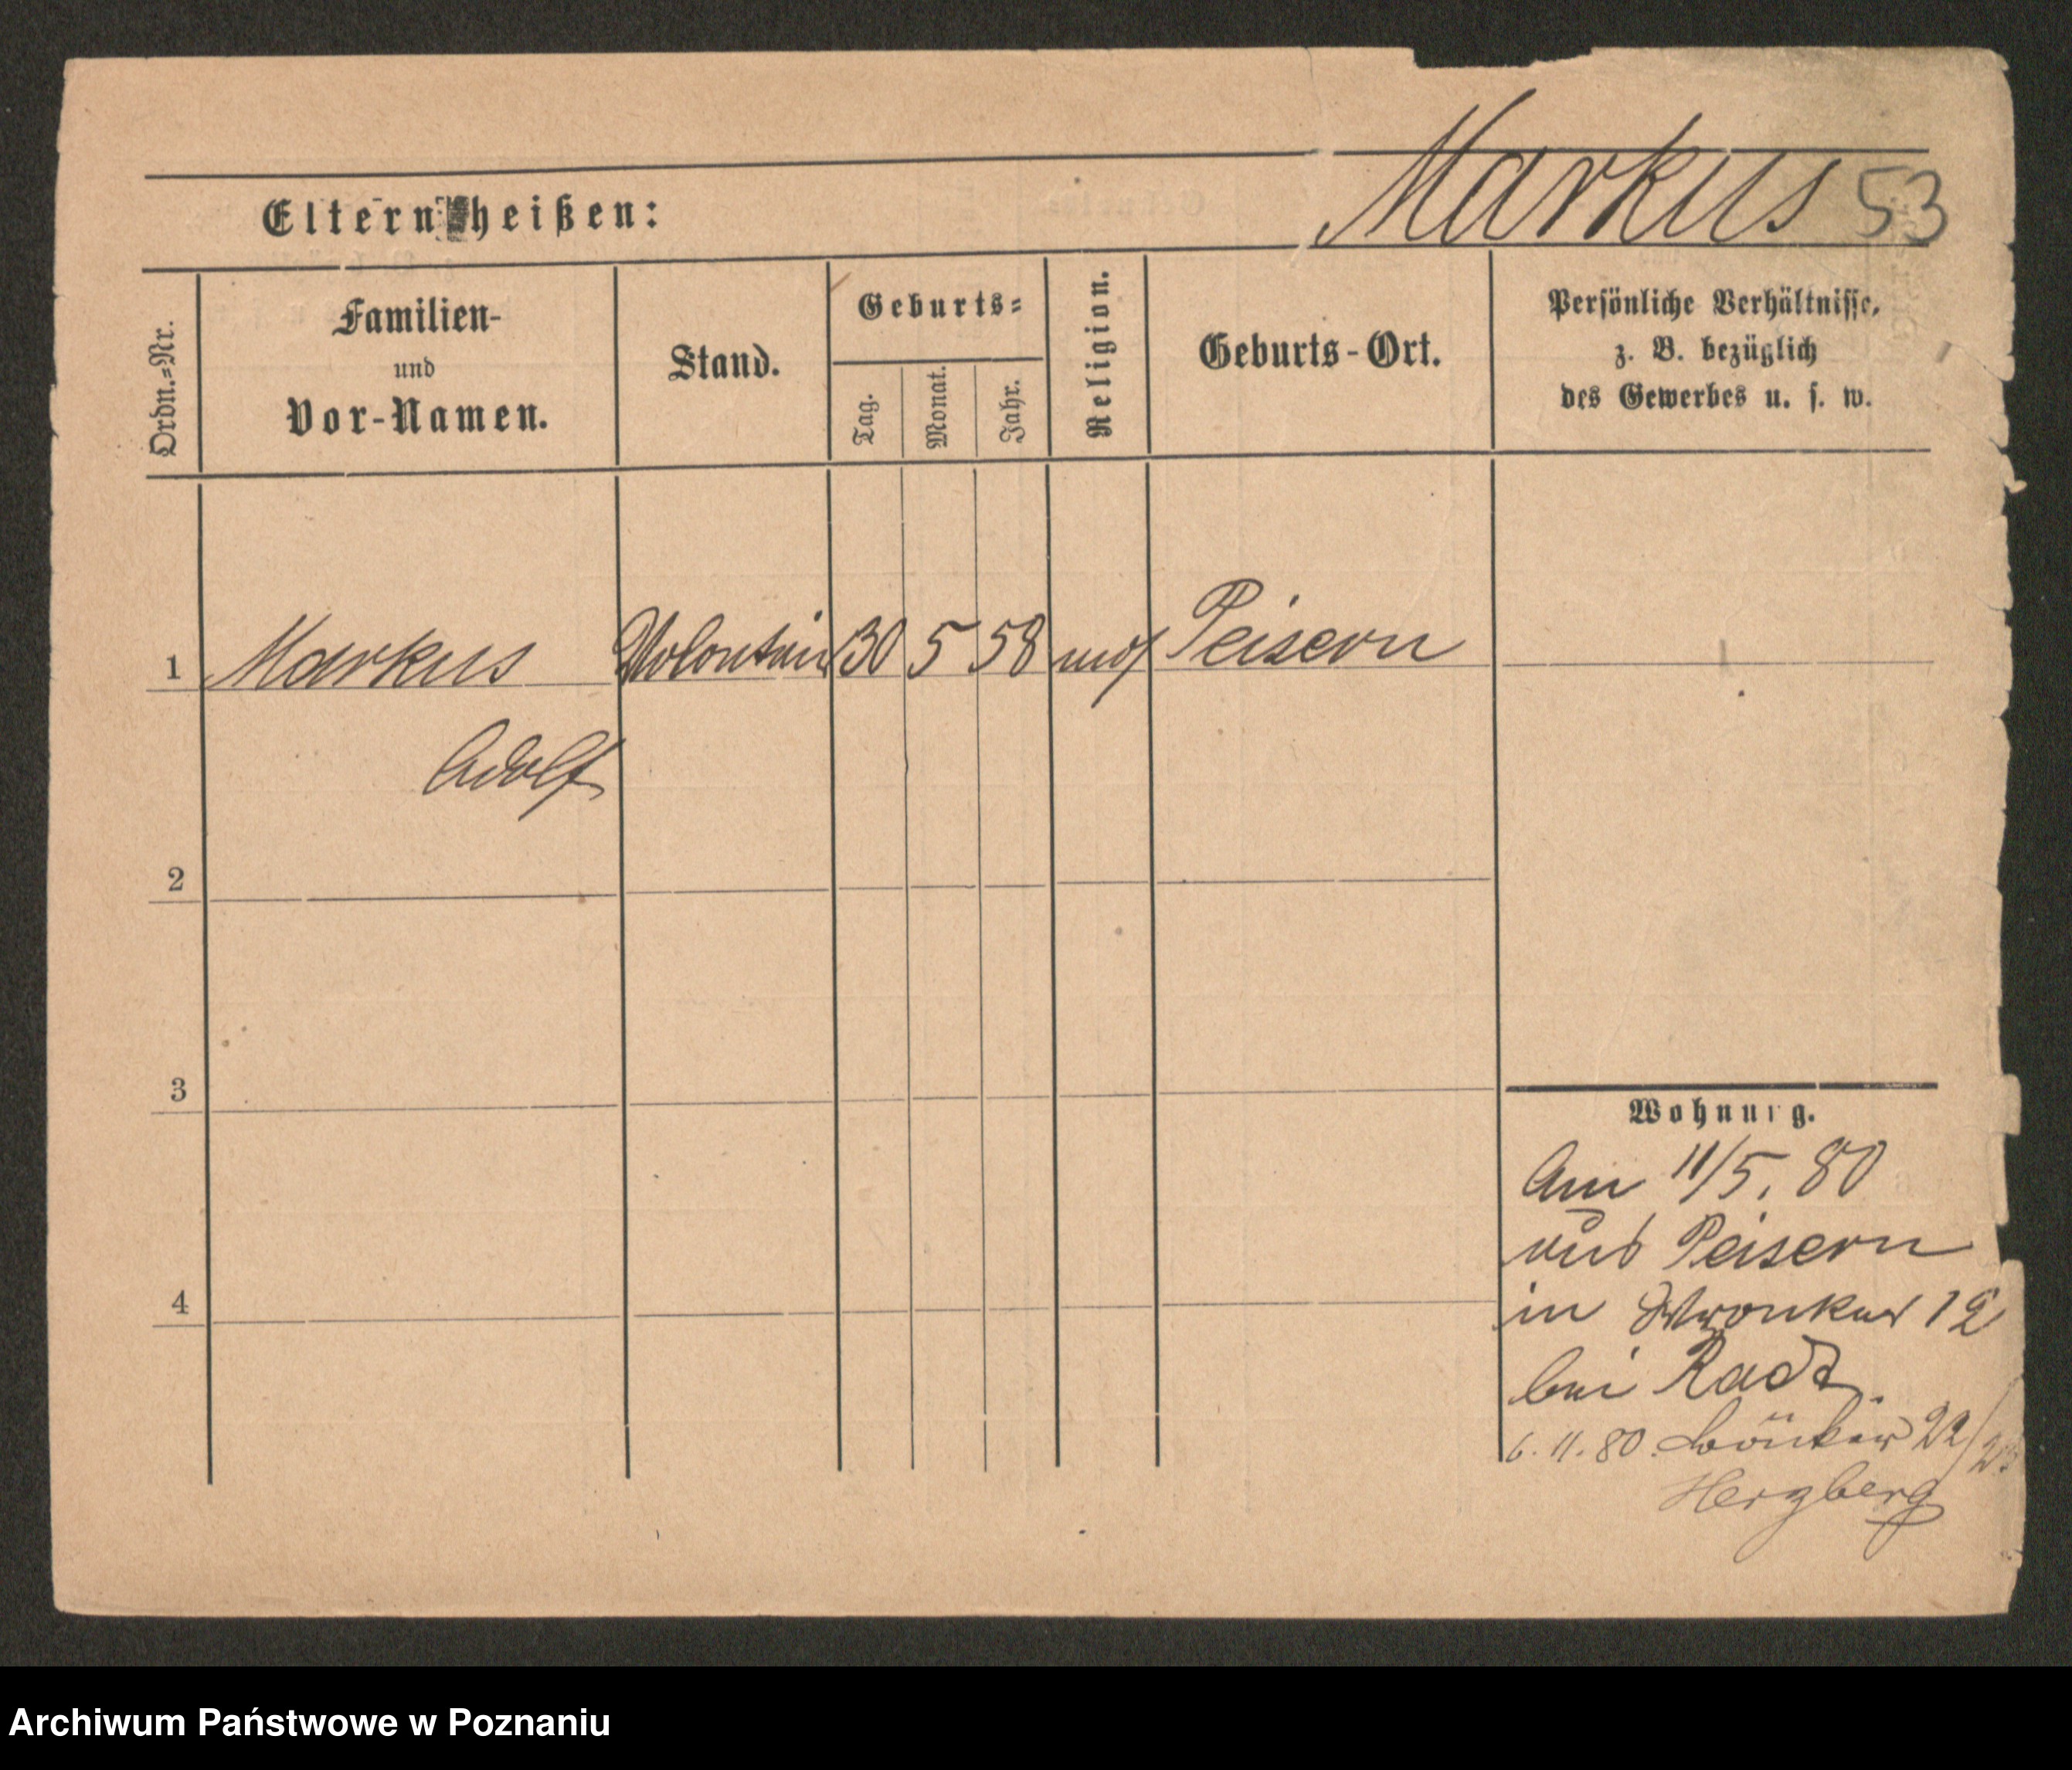 Markus 53
Eltern heißen:
Ordn.-Nr.
Familien-
und
Vor-Namen.
Stand.
Geburts-
Tag.
Monat.
Jahr.
Religion.
Geburts-Ort.
Persönliche Verhältnisse,
z. B. bezüglich
des Gewerbes u. s. w.
1 Markus Volontair 30 5 58 mos Peisern
Adolf
2
3
4
Wohnung.
Am 11/5. 80
aus Peisern
in Wronker 12
bei Radt
6. 11. 80. 22/
Herzberg
Archiwum Państwowe w Poznaniu